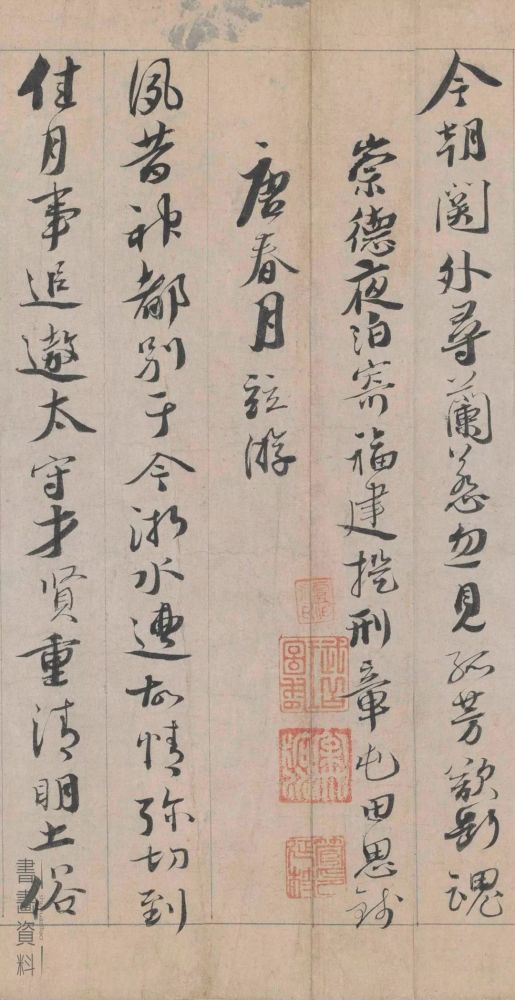 今朝関外尋蘭蕙忽見孤芳欲断魂
崇德夜泊寄福建提刑章屯田思錢
唐春月並游
夙昔神都别于今浙水遭故情弥切到
佳月事追遨太守才賢重清明土俗
書畫資料